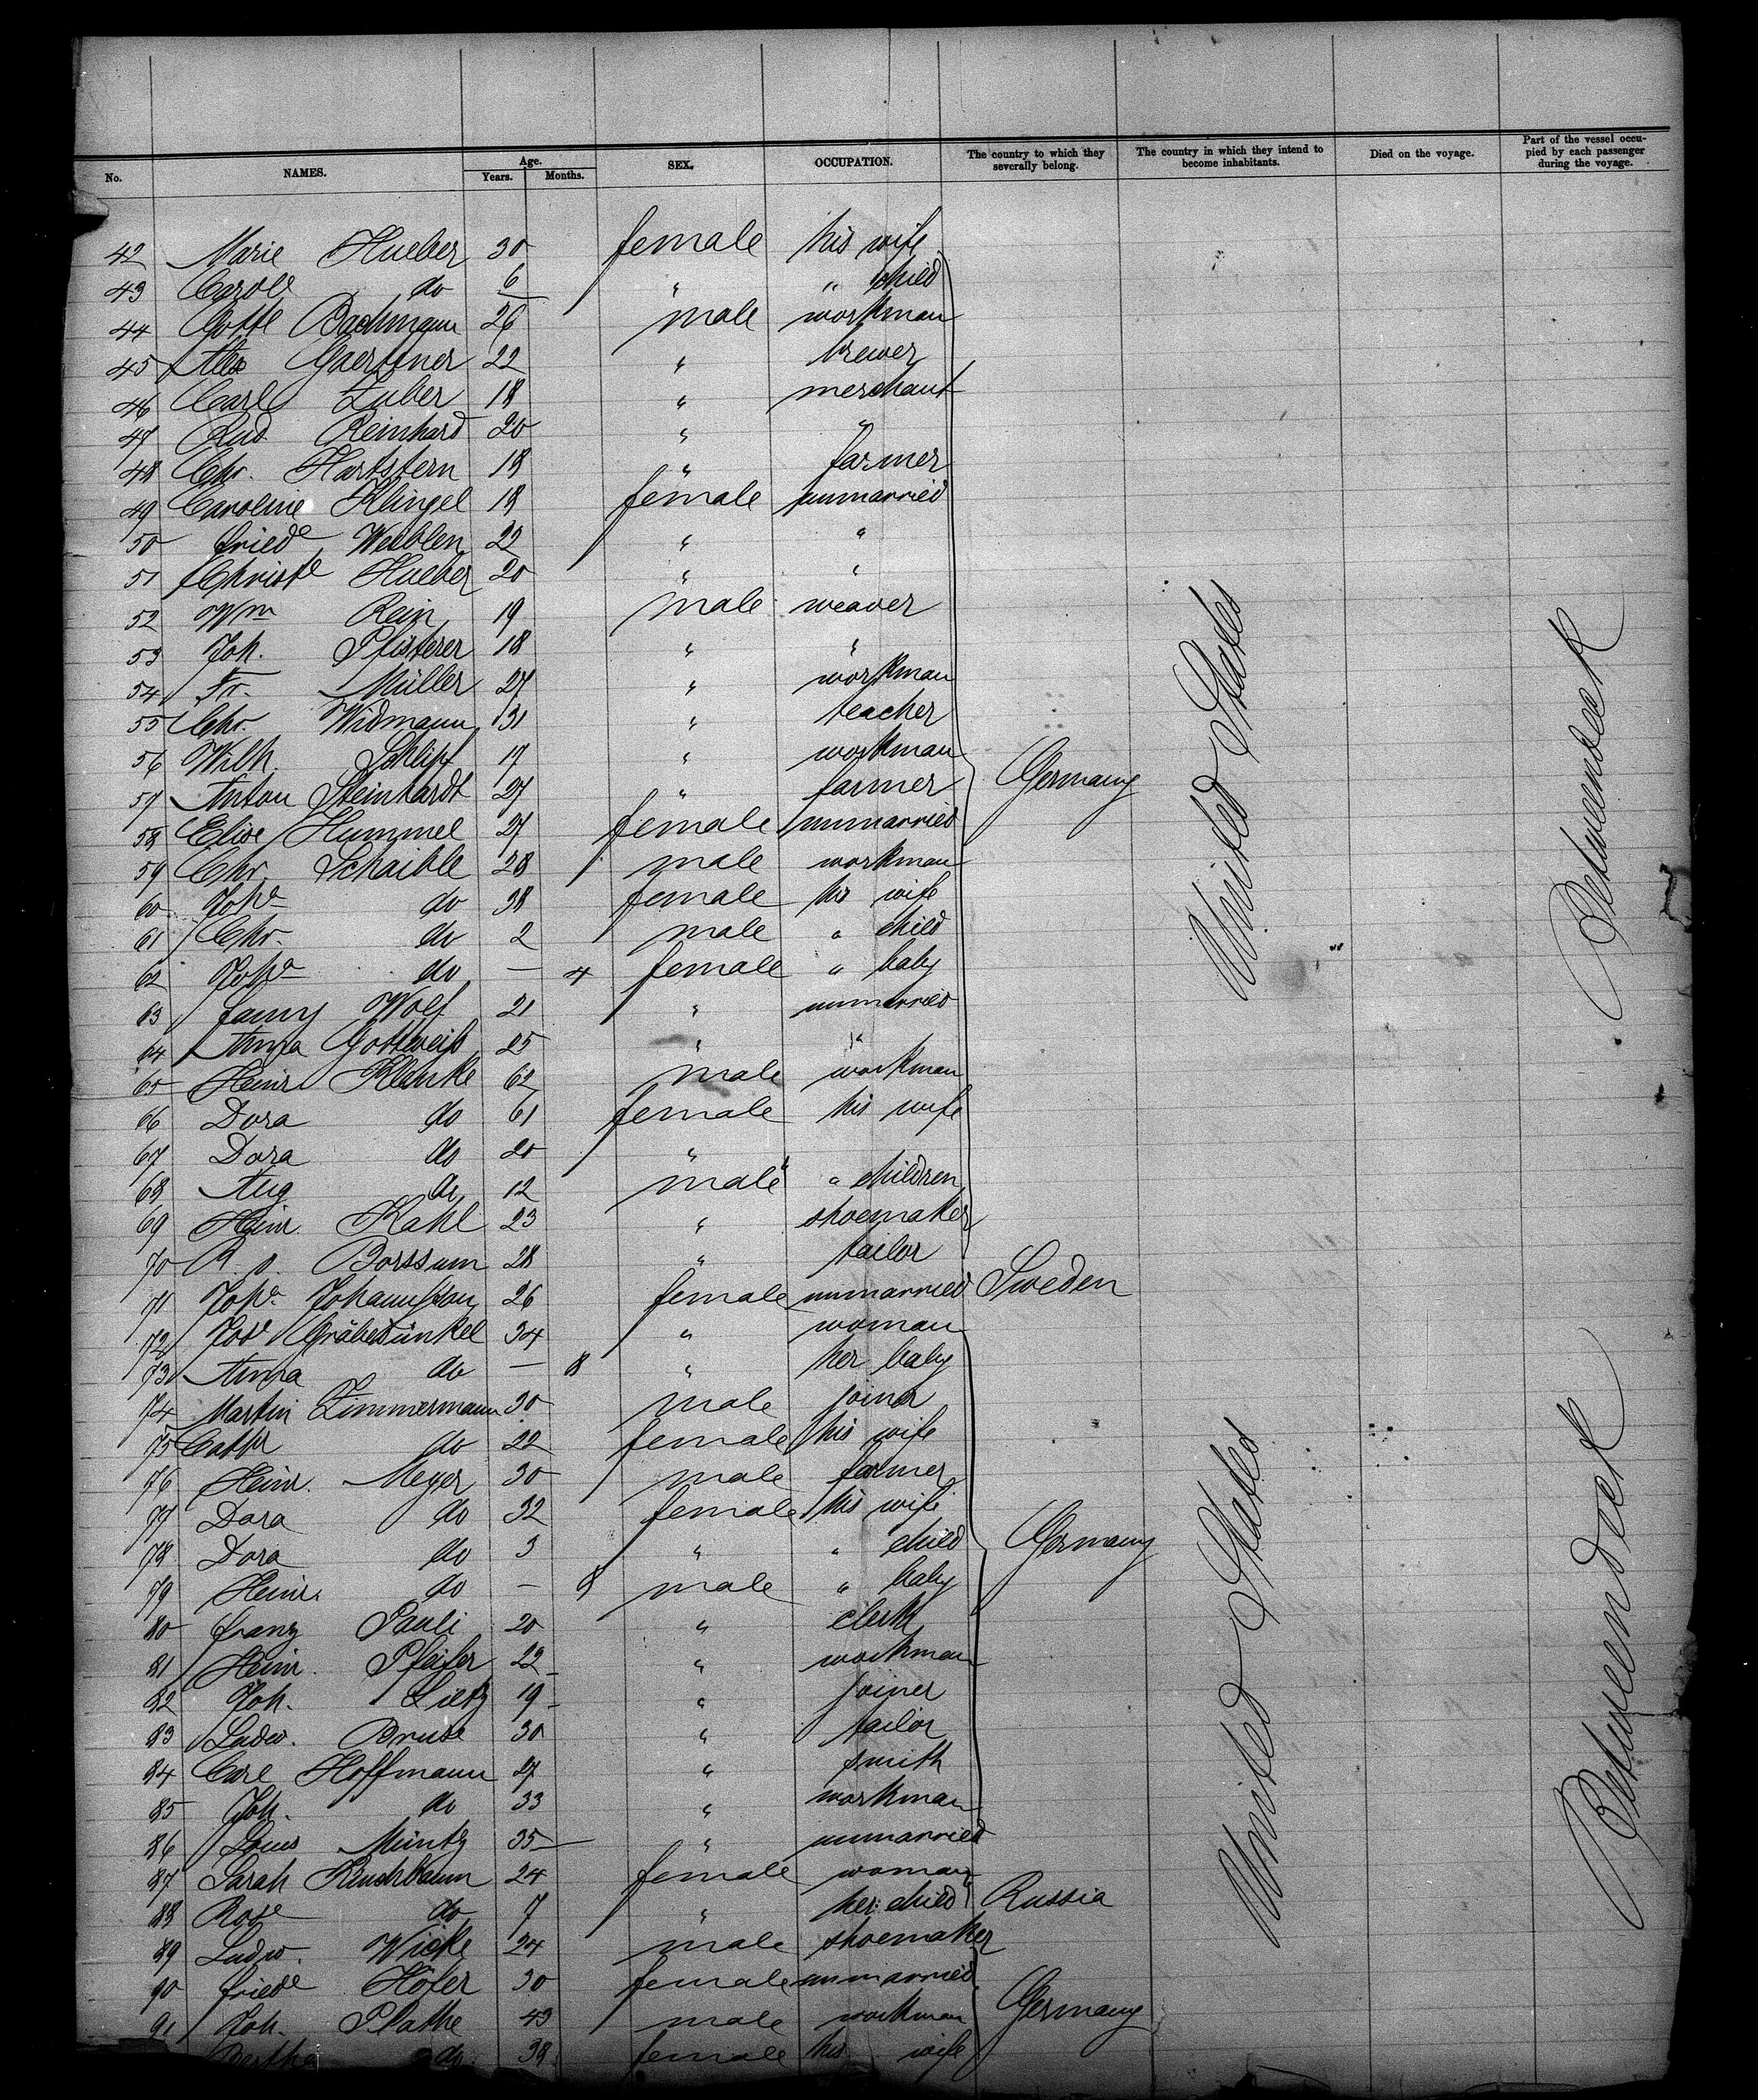 No. NAMES. Age. Years. Months. SEX. OCCUPATION. The country to which they severally belong. The country in which they intend to become inhabitants. Died on the voyage. Part of the vessel occupied by each passenger during the voyage.
42 Marie Hueber 30 female his wife
43 Carole do 6 " " child
44 Gottl Bachmann 26 male workman
45 Alex Gaertner 22 " brewer
46 Carl Zuber 18 " merchant
47 Rud. Reinhard 20 " "
48 Chr. Hartstern 18 " farmer
49 Caroline Klingel 18 female unmarried
50 Friede Weiblen 22 " "
51 Christe Hueber 20 " "
52 Wm Rein 19 male weaver
53 Joh. Pfisterer 18 " "
54 Fr. Müller 27 " workman
55 Chr. Widmann 31 " teacher
56 Wilh. Schlipf 17 " workman
57 Anton Steinhardt 27 " farmer Germany
58 Elise Hummel 27 female unmarried
59 Chr. Schaible 28 male workman
60 Joha do 38 female his wife
61 Chr. do 2 male " child
62 Joha do — 4 female " baby
63 Fanny Wolf 21 " unmarried
64 Anna Gottweiß 25 " "
65 Heinr Klenke 62 male workman
66 Dora do 61 female his wife
67 Dora do 20 "
68 Aug do 12 male " children
69 Heinr. Kahl 23 " shoemaker
70 Borssum 28 " tailor
71 Joha Johannsson 26 female unmarried Sweden
72 Jose Gräbedünkel 34 " woman
73 Anna do — 8 " her baby
74 Martin Zimmermann 30 male joiner
75 Cathr do 22 female his wife
76 Heinr. Meyer 30 male farmer
77 Dora do 32 female his wife
78 Dora do 3 " " child Germany
79 Heinr. do — 8 male " baby
80 Franz Pauli 20 " clerk
81 Heinr. Pfeifer 22 " workman
82 Joh. Lietz 19 " joiner
83 Ludw. Bruse 30 " tailor
84 Carl Hoffmann 27 " smith
85 Joh. do 33 " workman
86 Louis Müntz 35 " unmarried
87 Sarah 24 female woman
88 Rose do 7 " her child Russia
89 Ludw. Wicke 24 male shoemaker
90 Friede Höfer 30 female unmarried
91 Joh. Plathe 43 male workman Germany
Bertha do. 38 female his wife
United States
Betweendeck
United States
Betweendeck